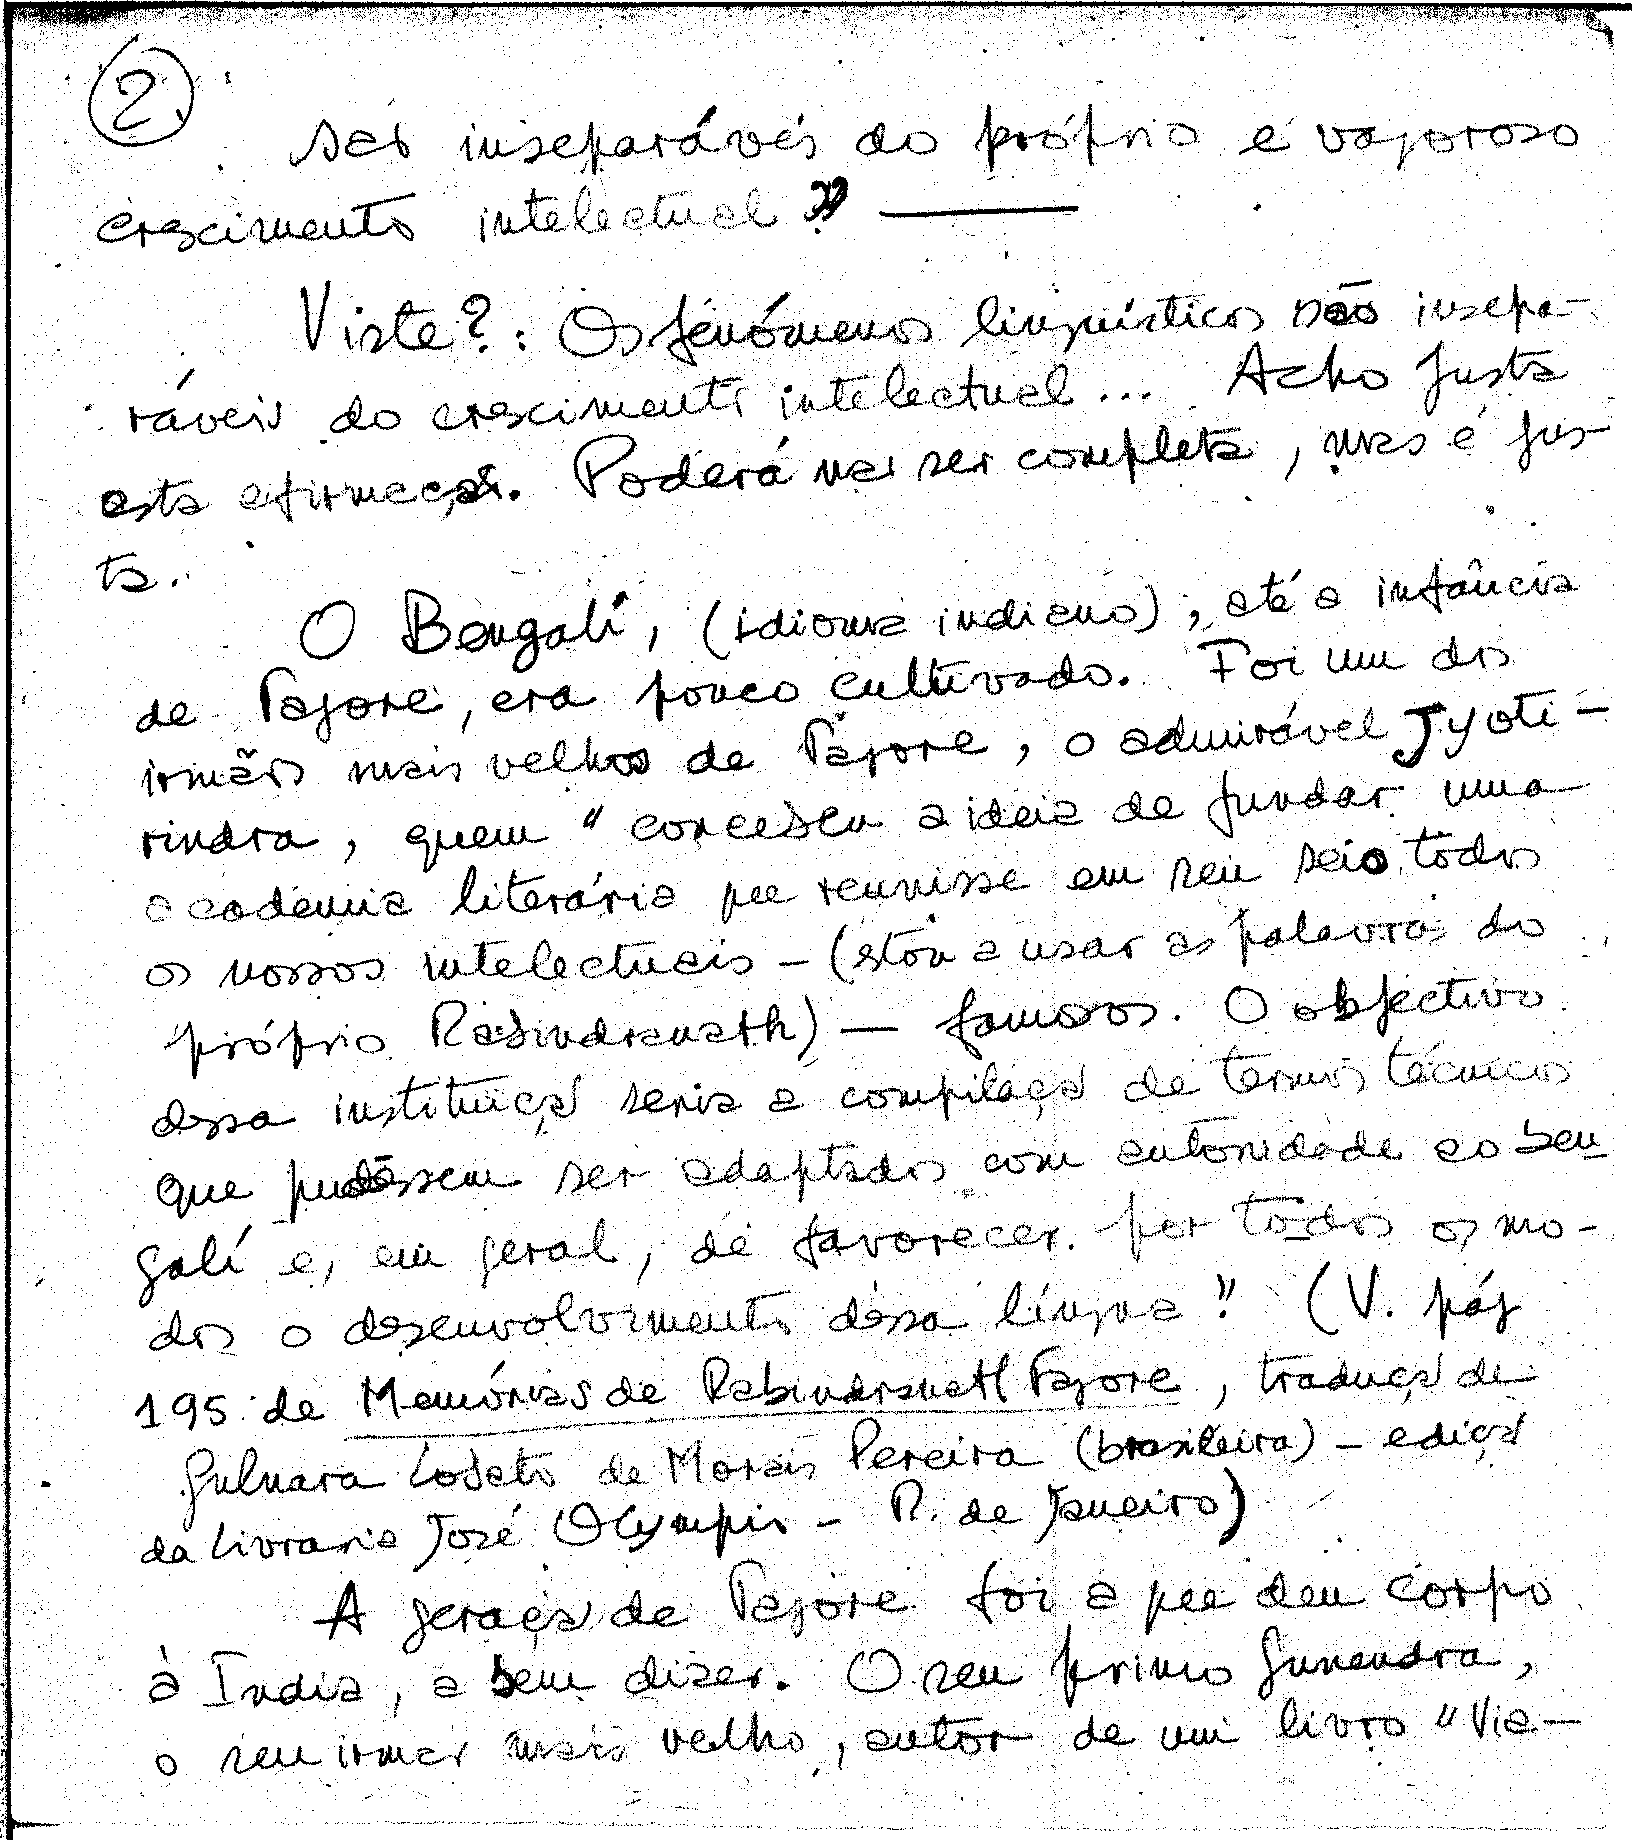 2
são inseparáveis do próprio e vagoroso
crescimento intelectual?" ———
Viste?: Os fenómenos linguísticos são insepa-
ráveis do crescimento intelectual... Acho justa
esta afirmação. Poderá não ser completa, mas é jus-
ta.
O Bengali, (idioma indiano), até a infância
de Tagore, era pouco cultivado. Foi um dos
irmãos mais velhos de Tagore, o admirável Jyoti-
rindra, quem "concebeu a ideia de fundar uma
academia literária que reunisse em seu seio todos
os nossos intelectuais - (estou a usar as palavras do
próprio Rabindranath) — famosos. O objectivo
dessa instituição seria a compilação de termos técnicos
que pudessem ser adaptados com autoridade ao ben
galí e, em geral, de favorecer por todos os mo-
dos o desenvolvimento dessa língua". (V. pág
195 de Memórias de Rabindranath Tagore, tradução de
Gulnara Lobato de Morais Pereira (brasileira) - edição
da Livraria José Olympio - R. de Janeiro)
A geração de Tagore foi a que deu corpo
à Índia, a bem dizer. O seu primo Gunendra,
o seu irmão mais velho, autor de um livro "Via-